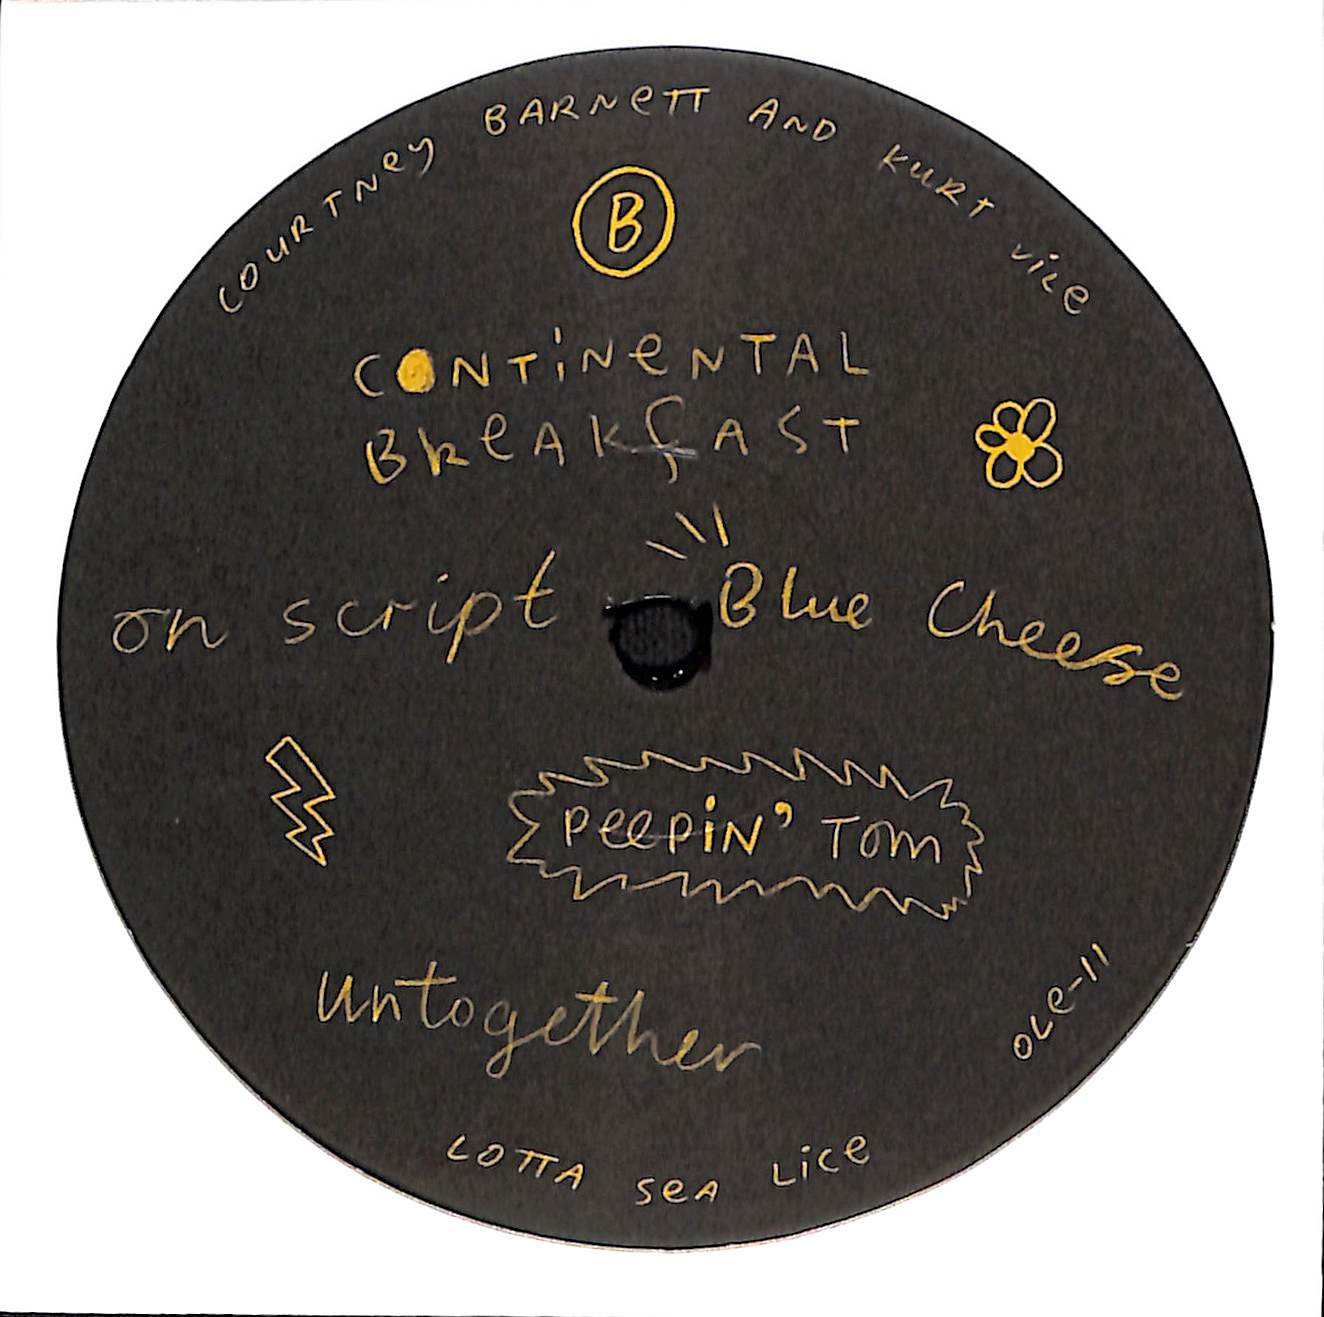 COURTNey BARNeTT AND KURT ViLe
B
CONTiNeNTAL
BReAKfAST
on script
Blue Cheese
PeePiN' Tom
untogether
OLe-11
LOTTA SeA Lice